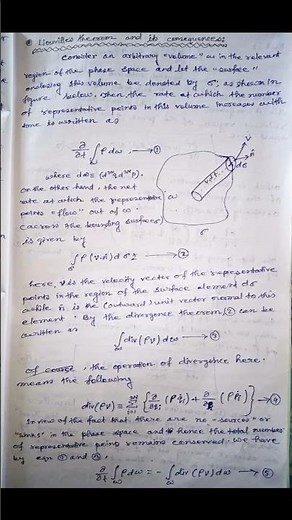 Liouville's theorem and its consequences:
Consider an arbitrary "volume" ω in the relevant
region of the phase space and let the "surface"
enclosing this volume be denoted by σ, as shown in
figure below. Then, the rate at which the number
of representative points in this volume increases with
time is written as
∂/∂t ∫ω ρ dω → ①
where dω = (d³ᴺq d³ᴺp).
On the other hand, the net
rate at which the representative
points "flow" out of ω
(across the bounding surface)
is given by
V
n̂
dσ
V.n̂
ω
σ
∫σ ρ (v.n̂) dσ → ②
here, v is the velocity vector of the representative
points in the region of the surface element dσ
while n̂ is the (outward) unit vector normal to this
element. By the divergence theorem, ② can be
written as
∫ω div(ρv) dω → ③
Of course, the operation of divergence here
means the following
div(ρv) = Σ { ∂/∂qᵢ (ρq̇ᵢ) + ∂/∂pᵢ (ρṗᵢ) } → ④
In view of the fact that there are no "sources" or
"sinks" in the phase space and hence the total number
of representative points remains conserved. We have
by eqn ① and ③,
∂/∂t ∫ω ρ dω = - ∫ω div(ρv) dω → ⑤